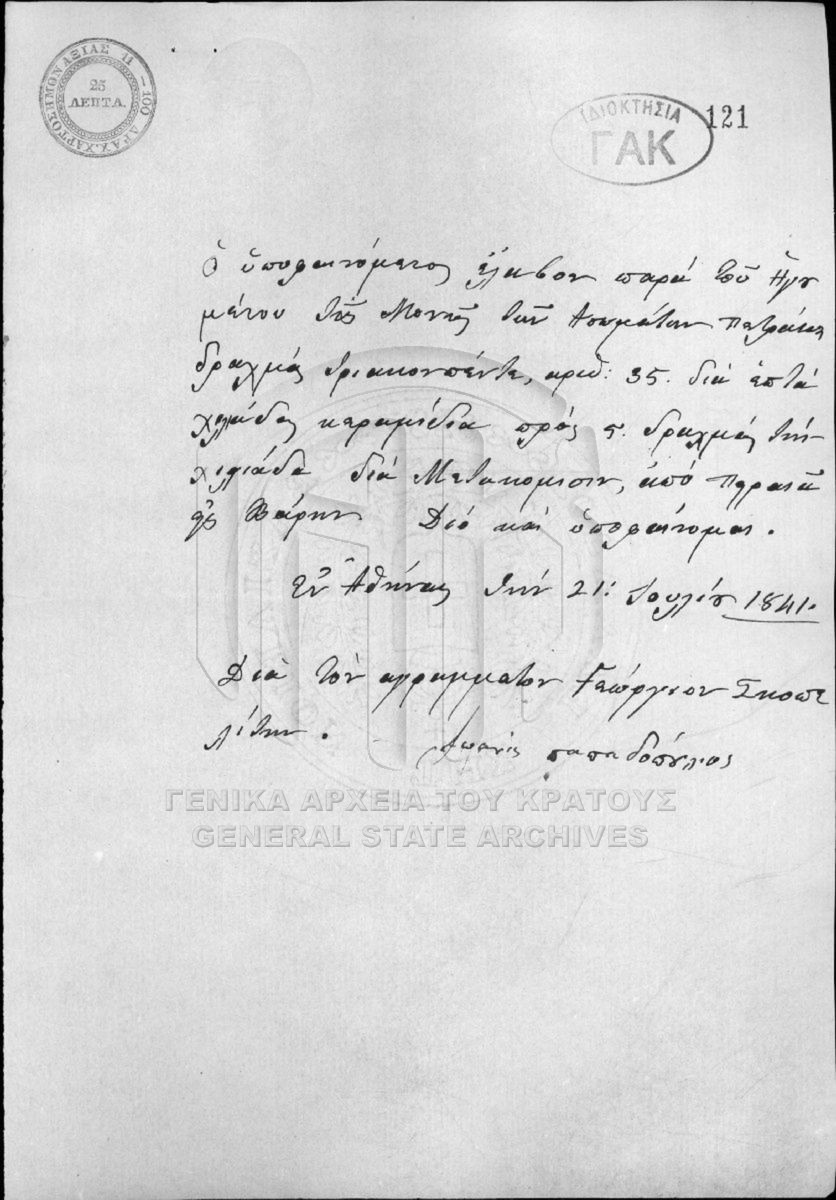 ΧΑΡΤΟΣΗΜΟΝ ΑΞΙΑΣ 11 — 100 ΔΡΑΧ.
25
ΛΕΠΤΑ.
ΙΔΙΟΚΤΗΣΙΑ
ΓΑΚ
121
Ὁ ὑποφαινόμενος ἔλαβον παρά τοῦ Ἡγου
μένου τῆς Μονῆς τῶν Ασωμάτων Πετράκη
δραχμάς τριακονπέντε, αριθ: 35. διά ἑπτά
χιλιάδες κεραμίδια πρός 5. δραχμάς τήν
χιλιάδα διά Μετακόμισιν, ἀπό Πηραιᾶ
εἰς Βάρην Διό καί ὑποφαίνομαι.
Εν Ἀθήναις τήν 21: Ιουλίου 1841.
Διά τον αγραμματον Γεώργιον Σκοπε
λίτην.
Ιωανης παπαδόπουλος
ΓΕΝΙΚΑ ΑΡΧΕΙΑ ΤΟΥ ΚΡΑΤΟΥΣ
GENERAL STATE ARCHIVES